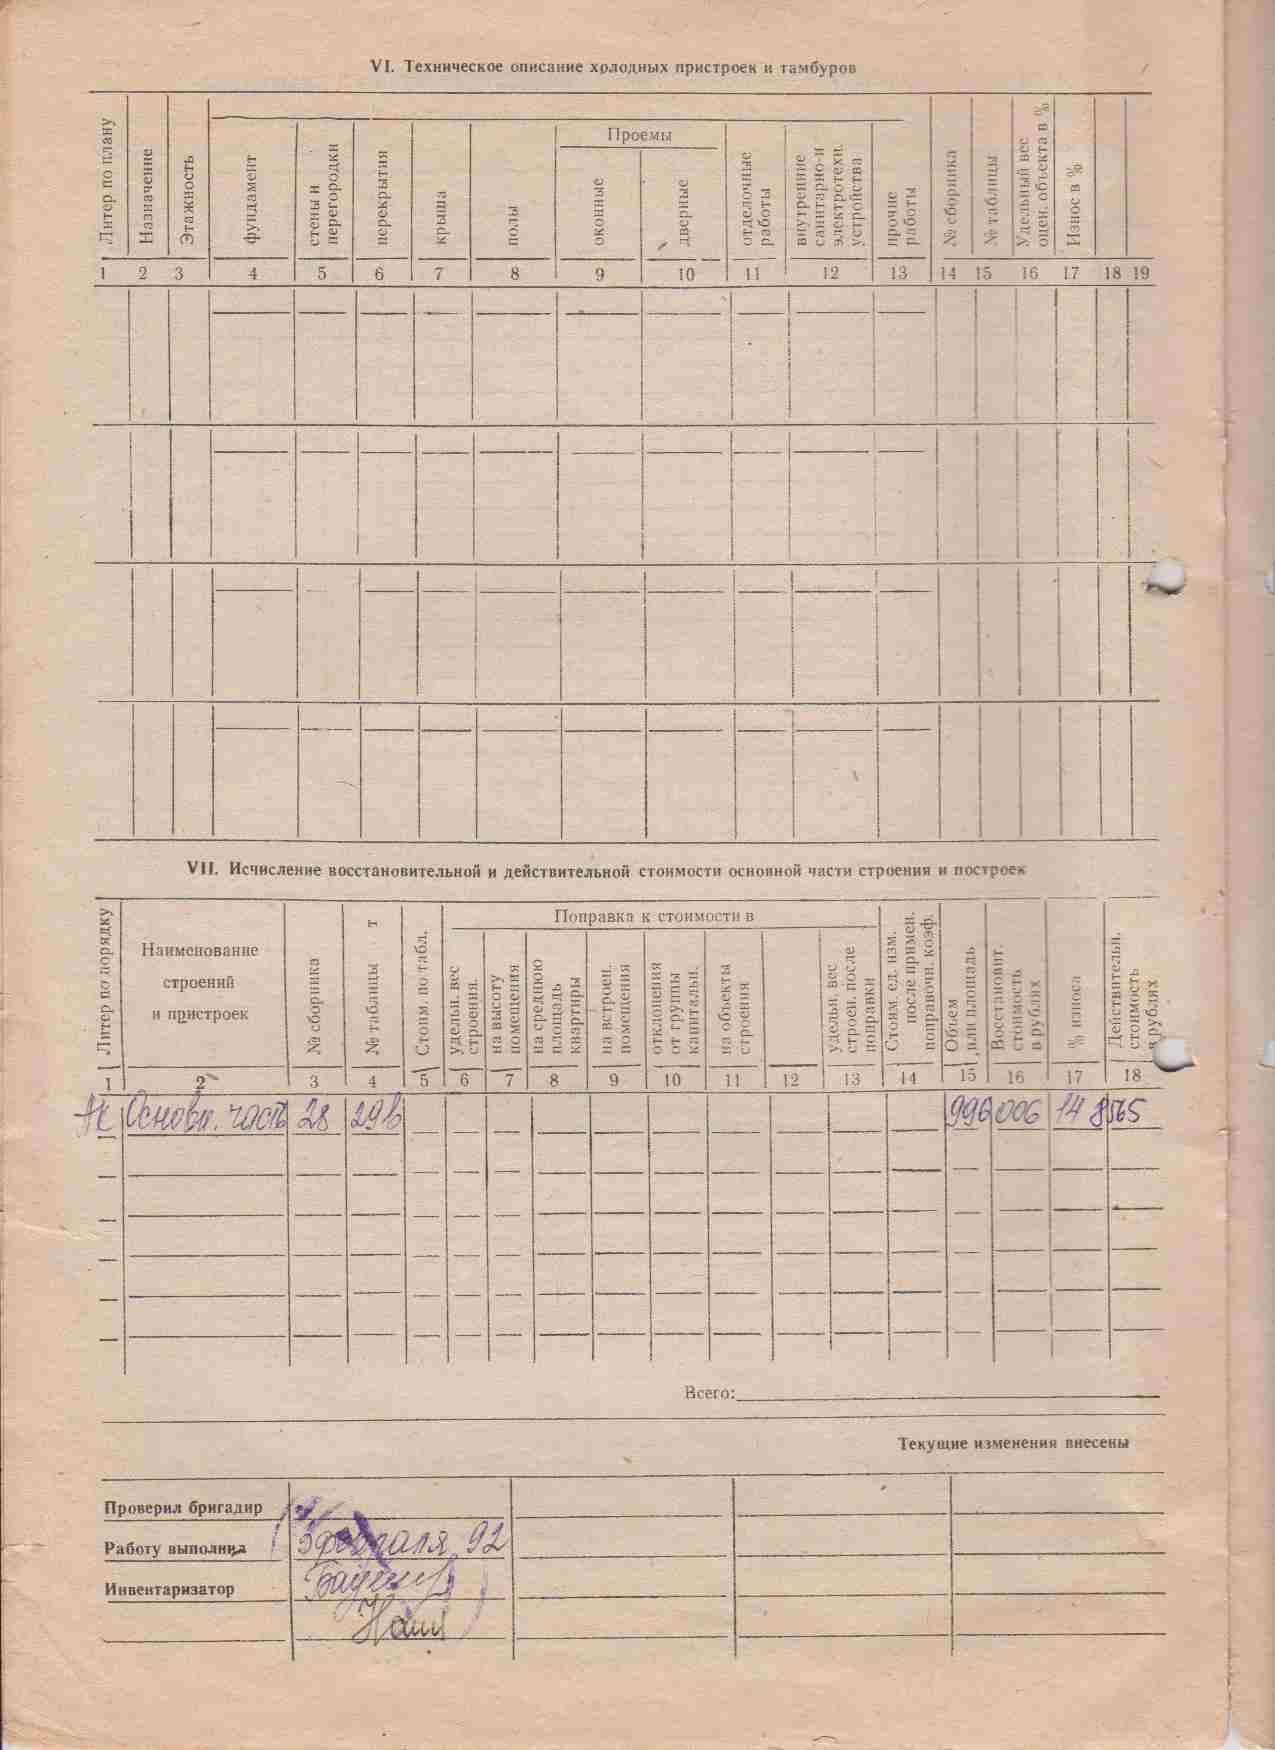 VI. Техническое описание холодных пристроек и тамбуров
Литер по плану
Назначение
Этажность
фундамент
стены и перегородки
перекрытия
крыша
полы
Проемы
оконные
дверные
отделочные работы
внутренние санитарно-и электротехн. устройства
прочие работы
№ сборника
№ таблицы
Удельный вес оцен. объекта в %
Износ в %
1 2 3 4 5 6 7 8 9 10 11 12 13 14 15 16 17 18 19
VII. Исчисление восстановительной и действительной стоимости основной части строения и построек
Литер по порядку
Наименование
строений
и пристроек
№ сборника
№ таблицы т
Стоим. по табл.
Поправка к стоимости в
удельн. вес строения.
на высоту помещения
на среднюю площадь квартиры
на встроен. помещения
отклонения от группы капитальн.
на объекты строения
удельн. вес строен. после поправки
Стоим. ед. изм. после примен. поправочн. коэф.
Объем или площадь
Восстановит. стоимость в рублях
% износа
Действительн. стоимость в рублях
1 2 3 4 5 6 7 8 9 10 11 12 13 14 15 16 17 18
Основн. часть 28 29в 996 006 14 8565
Всего:
Текущие изменения внесены
Проверил бригадир
Работу выполнил 5 февраля 92
Инвентаризатор